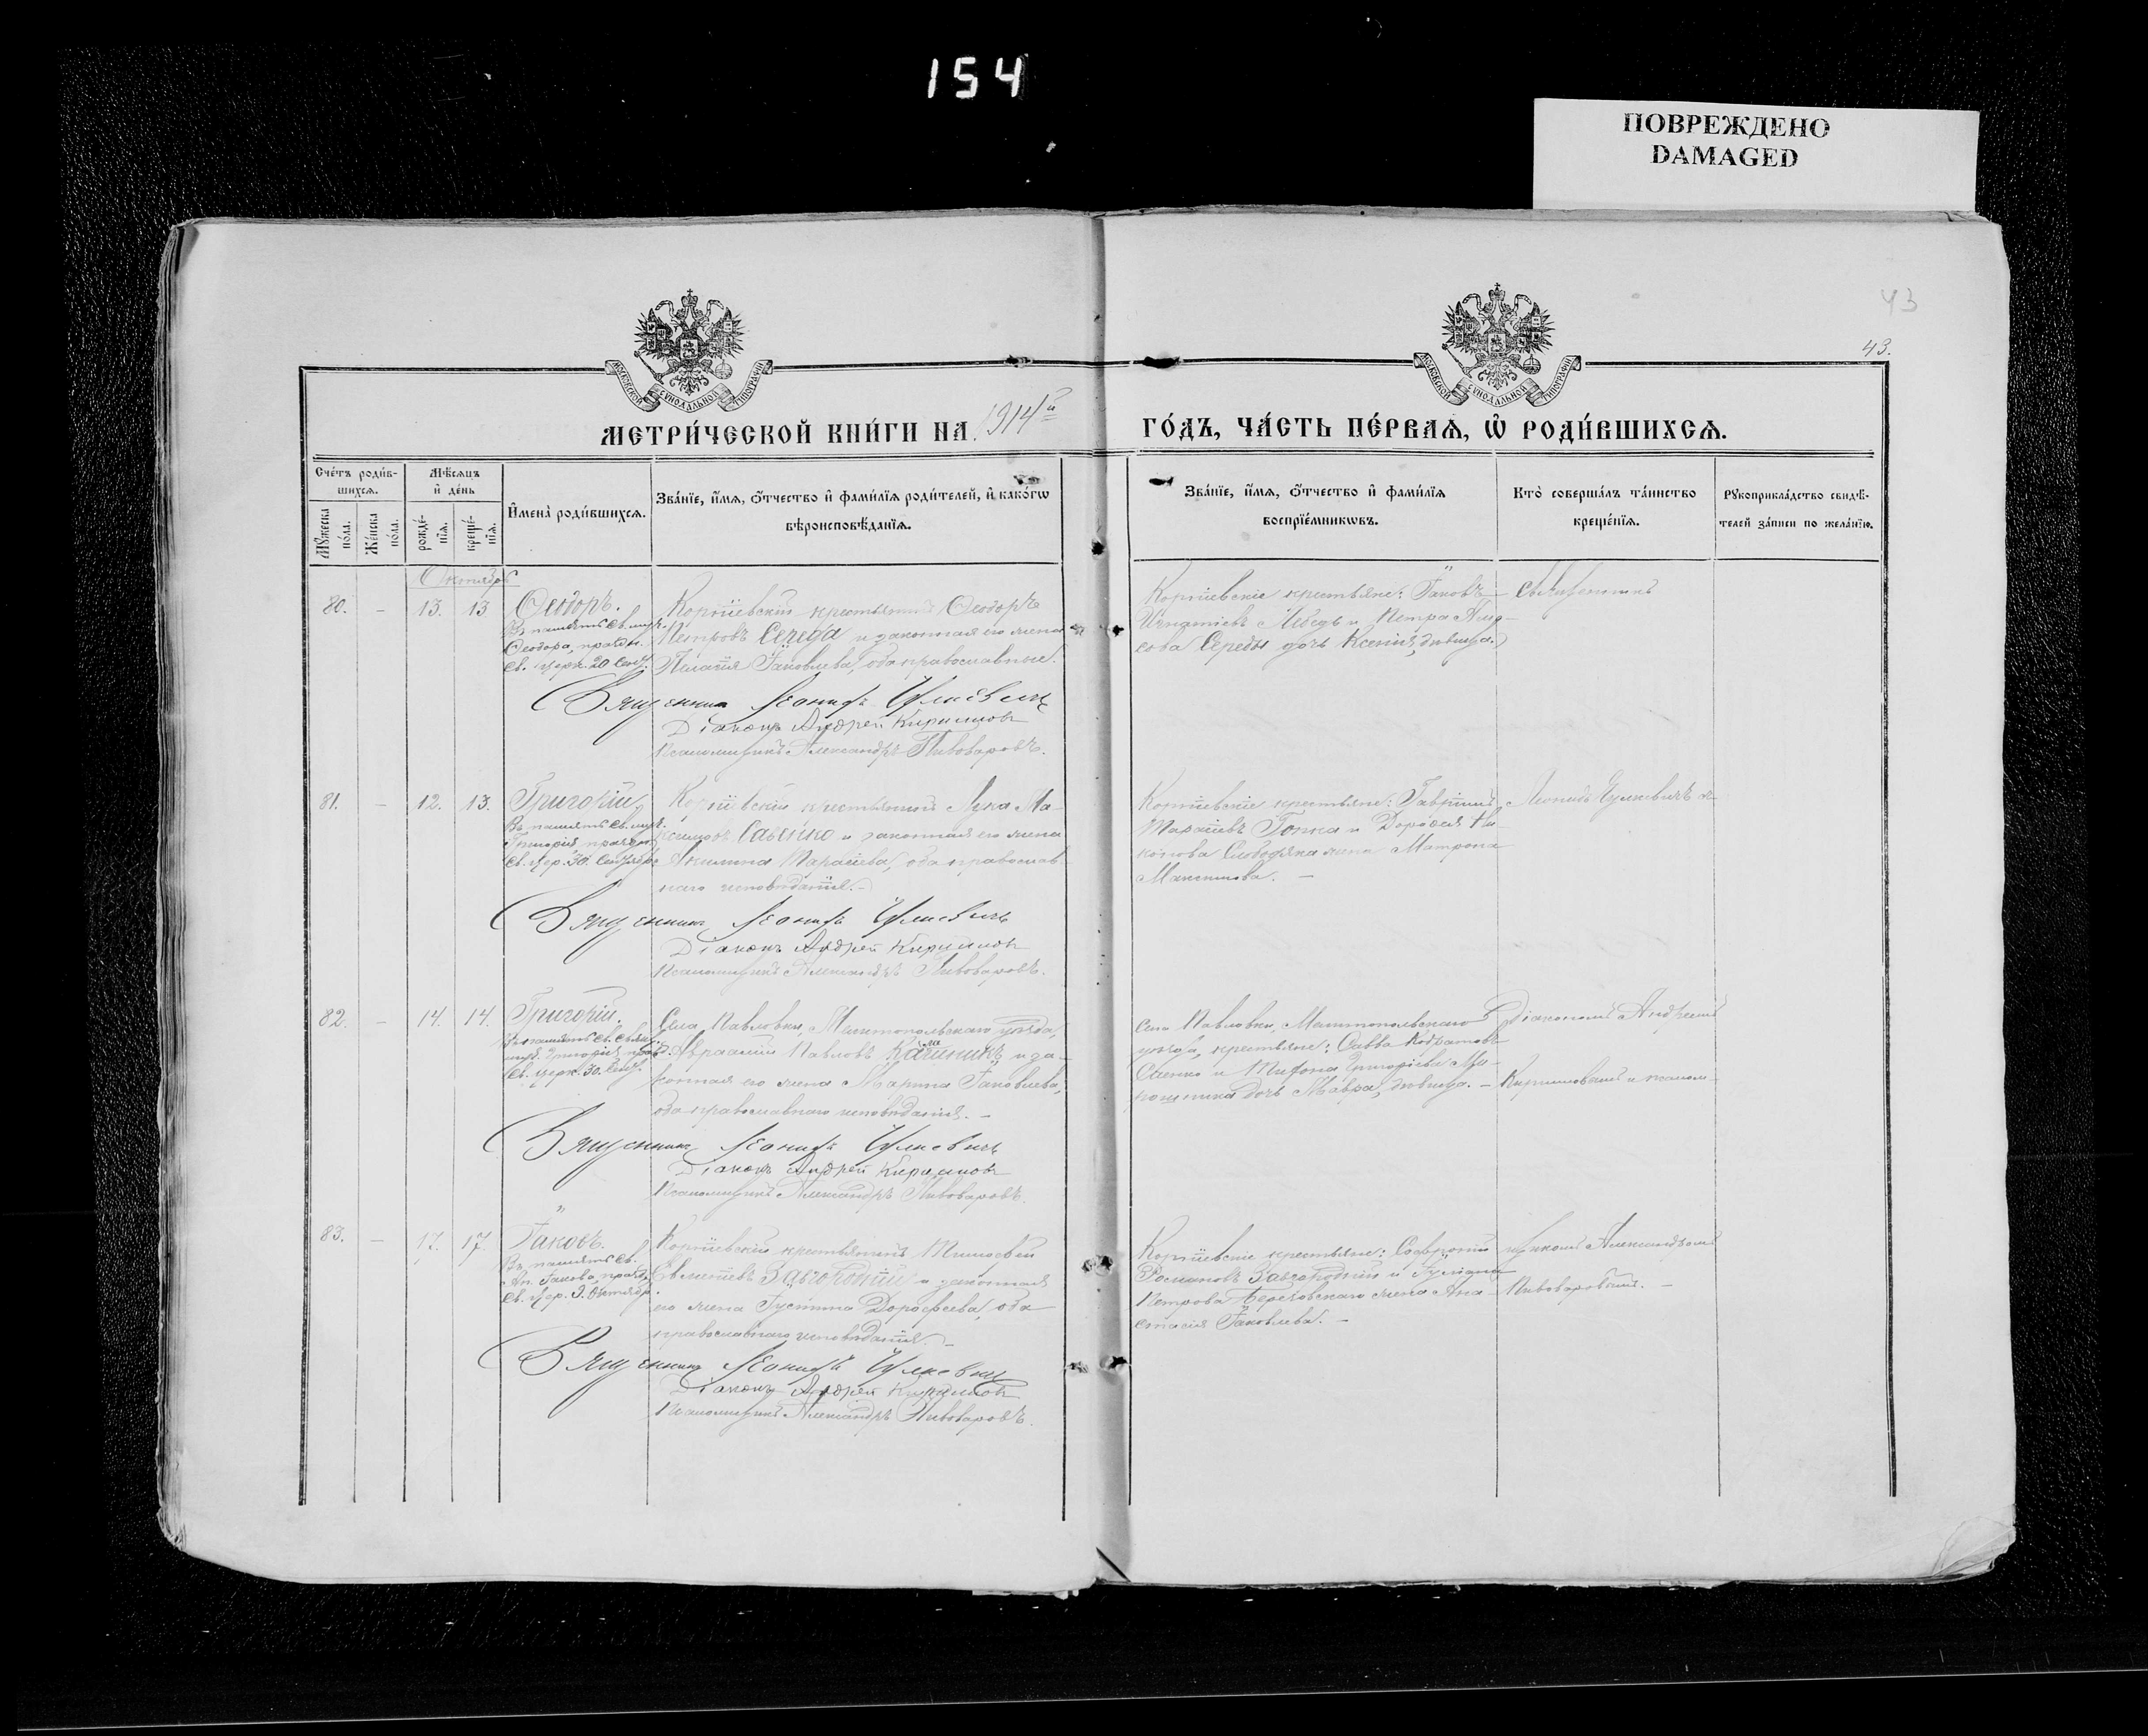 154
ПОВРЕЖДЕНО
DAMAGED
43
43.
МОСКОВСКОЙ СѴНОДАЛЬНОЙ ТИПОГРАФІИ
МОСКОВСКОЙ СѴНОДАЛЬНОЙ ТИПОГРАФІИ
МЕТРИ́ЧЕСКОЙ КНИ́ГИ НА 1914й
ГО́ДЪ, ЧА́СТЬ ПЕ́РВАѦ, Ѡ҆ РОДИ́ВШИХСѦ.
Сче́тъ роди́вшихсѧ.
Мꙋ́жеска по́ла.
Же́нска по́ла.
Мѣ́сѧцъ и҆ де́нь
рожде́нїѧ.
креще́нїѧ.
И҆мена̀ роди́вшихсѧ.
Зва́нїе, и҆́мѧ, ѻ҆́тчество и҆ фами́лїѧ роди́телей, и҆ како́гѡ
вѣроисповѣ́данїѧ.
Зва́нїе, и҆́мѧ, ѻ҆́тчество и҆ фами́лїѧ
воспрїе́мникѡвъ.
Кто̀ соверша́лъ та́инство
креще́нїѧ.
Рꙋкоприкла́дство свидѣ́-
телей за́писи по жела́нїю.
Октябрь
80. - 13. 13 Ѳеодоръ.
Въ память св. муч.
Ѳеодора, праздн.
св. церк. 20 Сент.
Корніевскій крестьянинъ Ѳеодоръ
Петровъ Середа и законная его жена
Пелагія Іаковлева, оба православные.
Священникъ Леонидъ
Діаконъ Андрей Кириллов
Псаломщикъ Александръ Пивоваровъ.
Корніевскіе крестьяне: Іаковъ
Игнатіевъ Лебедь и Петра
Середы дочь Ксенія, дѣвица.
Священникъ
81. - 12. 13. Григорій
Въ память св. муч.
Григорія праздн.
св. цер. 30. Сентября
Корніевскій крестьянинъ Лука Ма-
ксимовъ Савенко и законная его жена
Акилина Тарасіева, оба православ-
наго исповѣданія.
Священникъ Леонидъ
Діаконъ Андрей Кириллов
Псаломщикъ Александръ Пивоваровъ.
Корніевскіе крестьяне: Гавріилъ
Тарасіевъ
жена Матрона
Максимова. -
Леонидъ
82. - 14. 14. Григорій.
Въ память св.
муч. Григорія праз.
св. церк. 30. Сент.
Села Павловки, Мелитопольскаго уѣзда,
Авраамій Павловъ и за-
конная его жена Марина Іаковлева,
оба православнаго исповѣданія. -
Священникъ Леонидъ
Діаконъ Андрей Кириллов
Псаломщикъ Александръ Пивоваровъ.
Села Павловки, Мелитопольскаго
уѣзда, крестьяне: Савва
и Григоріева Ми-
дочь Мавра, дѣвица. -
Діакономъ Андреемъ
Кирилловымъ и псалом-
83. - 17. 17. Іаковъ.
Въ память св.
Ап. Іакова, празд.
св. цер. 9. Октябр.
Корніевскій крестьянинъ Тимоѳей
Завгородній и законная
его жена Іустина Дороѳеева, оба
православнаго исповѣданія. -
Священникъ Леонидъ
Діаконъ Андрей Кириллов
Псаломщикъ Александръ Пивоваровъ.
Корніевскіе крестьяне: Софроній
Романовъ Завгородній и
Петрова жена Ана-
стасія Іаковлева. -
щикомъ Александромъ
Пивоваровымъ. -